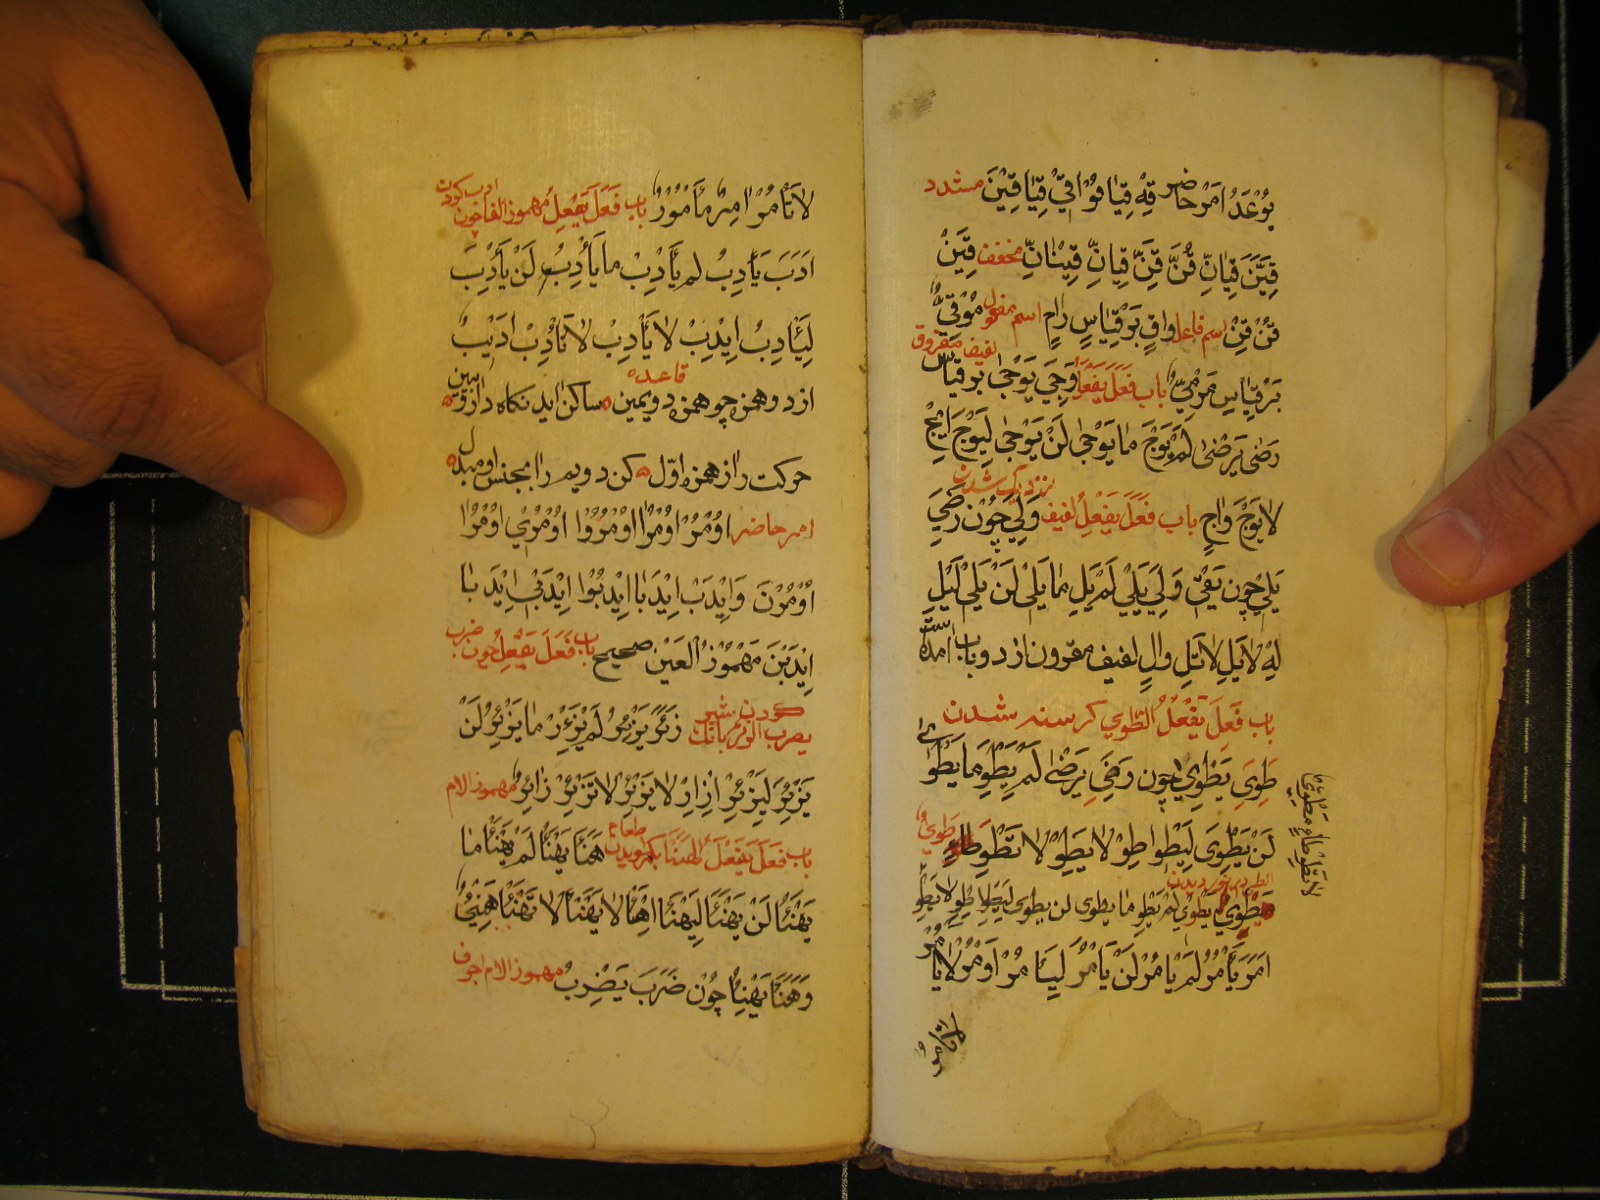 يُوْعَدُ اَمْرْ حَاضِر قِهْ قِيٰا قُوْا قِيْ قِيٰا قِيْنَ مشدد
قِيَنَّ قِيٰانِّ قُنَّ قِنَّ قِيٰانِّ قِيْنٰانِّ مخفف قِيَنْ
قُنْ قِنْ اسم فاعل وَاقٍ بَرْ قِيٰاسِ رَامٍ اسم مفعول مُوْقِىٌّ
بَرْ قِيٰاسِ مَرْمِيٌّ باب فَعَلَ يَفْعَلُ وَجِيَ يَوْجىٰ بر قياس لفيف مفروق
رَضِىَ يَرْضىٰ لَمْ يَوْجَ مٰا يَوْجىٰ لَنْ يَوْجىٰ لِيَوْجَ اِيْجَ
لا يَوْجَ وَاجٍ باب فَعَلَ يَفْعِلُ لفيف وَلِيَ چُون رَضِيَ نزديك شدن
يَلِي چون يَقِيْ وَلِيَ يَلِيْ لَمْ يَلِ مٰا يَلِيْ لَنْ يَلِيَ لِيَلِ
لِهْ لا يَلِ لا تَلِ وَالٍ لفيف مقرون از دو باب آمده است
باب فَعِلَ يَفْعَلُ الطَّوي كرسنه شدن
طَوِىَ يَطْوىٰ چون رَضِيَ يَرْضىٰ لَمْ يَطْوَ مٰا يَطْوىٰ
لَنْ يَطْوىٰ لِيَطْوَ اِطْوَ لا يَطْوَ لا تَطْوَ طَاوٍ مَطْوِيٌّ
يَطْوِيْ لم يَطْوِ مٰا يطوى لن يطوى ليَطْوِ اِطْوِ لا يَطْوِ
لا تَطْوِ طَاوٍ مَطْوِيٌّ
اَمَرَ يَأْمُرُ لَمْ يَأْمُرْ لَنْ يَأْمُرَ لِيَأْمُرْ اُوْمُرْ لا يَأْمُرْ
لا تَأْمُرْ
لا تَأْمُرْ اٰمِرٌ مَأْمُوْرٌ باب فَعَلَ يَفْعِلُ مهموز الفا چون ادب كردن
اَدَبَ يَأْدِبُ لم يَأْدِبْ مٰا يَأْدِبُ لَنْ يَأْدِبَ
لِيَأْدِبْ اِيْدِبْ لا يَأْدِبْ لا تَأْدِبْ اَدِيْبٌ
قاعده
از دو همزه چو همزه دويمين ساكن ايد نكاه دار و ببين
حركت را از همزه اوّل كن دويم را بجنس او مبدل
امر حاضر اُوْمُرْ اُوْمُرٰا اُوْمُرُوْا اُوْمُرِيْ اُوْمُرٰا
اُوْمُرْنَ وَ اِيْدِبْ اِيْدِبٰا اِيْدِبُوْا اِيْدِبِيْ اِيْدِبٰا
اِيْدِبْنَ مَهْمُوْزُ الْعَيْن صحيح باب فَعَلَ يَفْعِلُ چون ضرب
يضرب الزئر بانك كردن شير زَئَرَ يَزْئِرُ لَمْ يَزْئِرْ مٰا يَزْئِرُ لَنْ
يَزْئِرَ لِيَزْئِرْ اِزْئِرْ لا يَزْئِرْ لا تَزْئِرْ زٰائِرٌ مهموز الام
باب فَعَلَ يَفْعَلُ طعام هَنَأَ يَهْنَأُ لَمْ يَهْنَأْ مٰا
يَهْنَأُ لَنْ يَهْنَأَ لِيَهْنَأْ اِهْنَأْ لا يَهْنَأْ لا تَهْنَأْ هَنِيْءٌ
وَهَنَأَ يَهْنِأُ چُوْن ضَرَبَ يَضْرِبُ مهموز الام اجوف